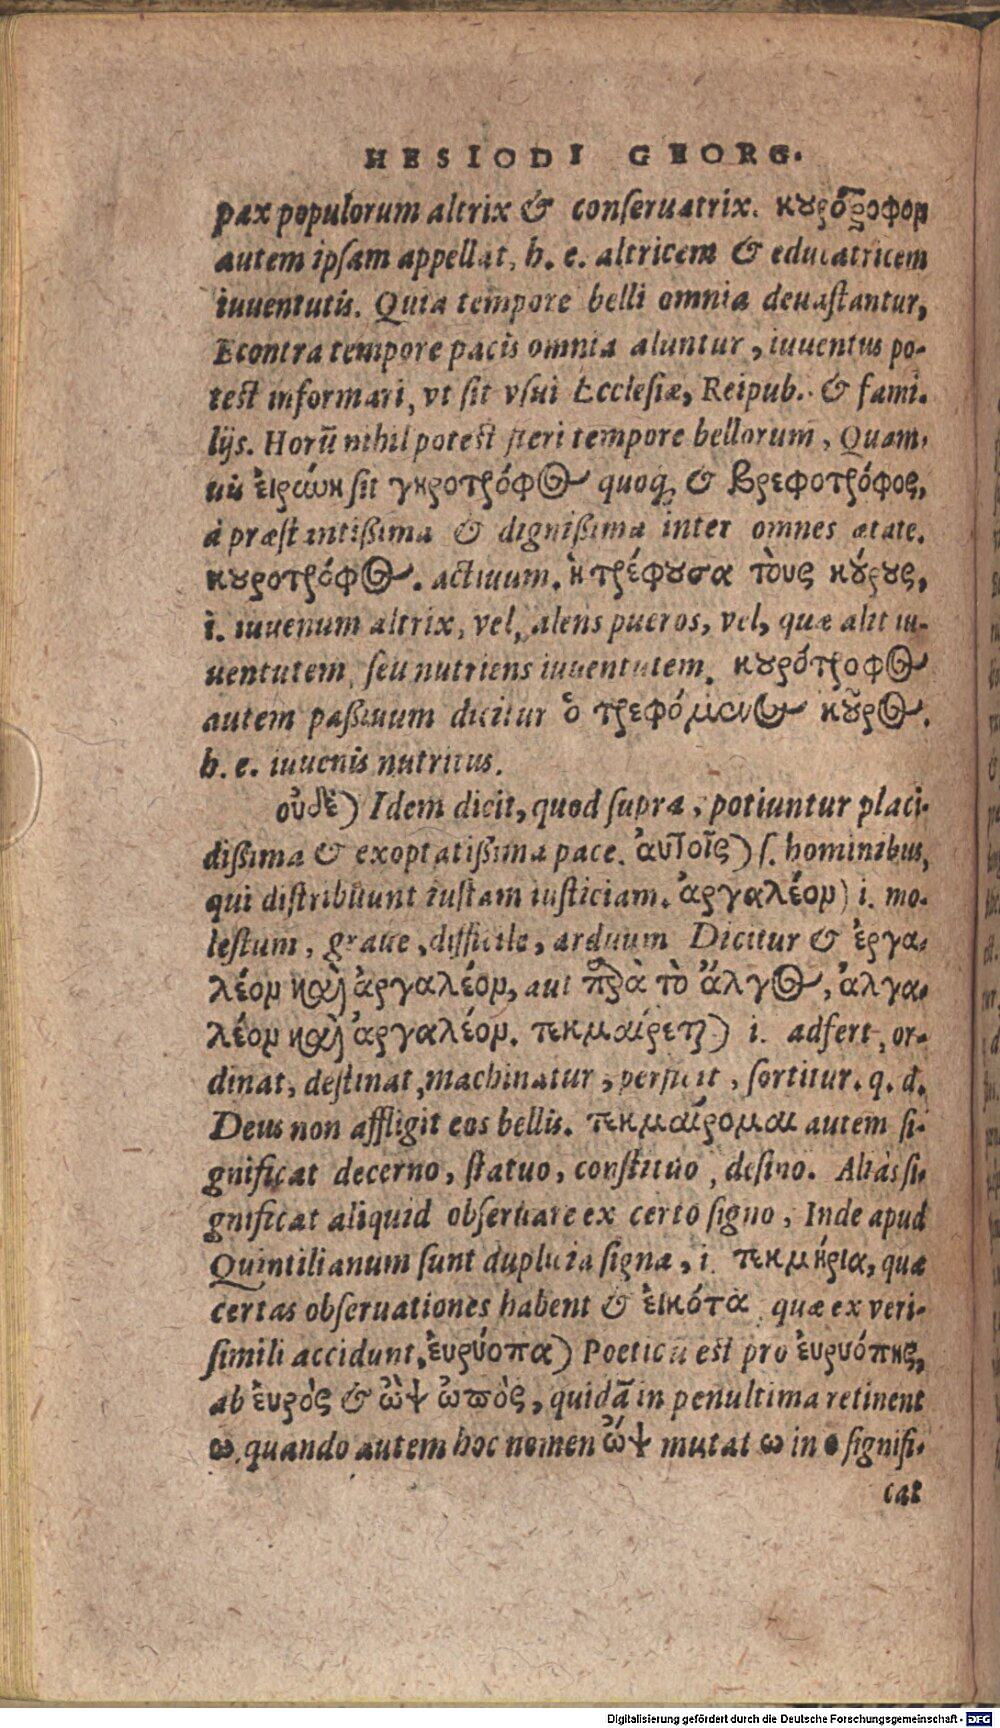 HESIODI GEORG.
pax populorum altrix & conseruatrix. κουρότροφον
autem ipsam appellat, h. e. altricem & educatricem
iuuentutis. Quia tempore belli omnia deuastantur,
Econtra tempore pacis omnia aluntur, iuuentus po-
test informari, vt sit vsui Ecclesiæ, Reipub. & fami-
lijs. Horũ nihil potest fieri tempore bellorum, Quam-
uis ἐιράωη sit γηροτρόφος quoq; & βρεφοτρόφος,
à præstantißima & dignißima inter omnes ætate.
κουροτρόφος. actiuum. ἡ τρέφουσα τοὺς κούρους,
i. iuuenum altrix, vel, alens pueros, vel, quæ alit iu-
uentutem, seu nutriens iuuentutem. κουρότροφος
autem paßiuum dicitur ὁ τρεφόμενος κοῦρος.
h. e. iuuenis nutritus.
οὐδὲ) Idem dicit, quod supra, potiuntur placi-
dißima & exoptatißima pace. ἀυτοῖς) s. hominibus,
qui distribuunt iustam iusticiam. ἀργαλέον) i. mo-
lestum, graue, difficile, arduum Dicitur & ἐργα-
λέον καὶ ἀργαλέον, aut παρὰ τὸ ἄλγος, ἀλγα-
λέον καὶ ἀργαλέον. τεκμαίρεται) i. adfert, or-
dinat, destinat, machinatur, perficit, sortitur. q. d.
Deus non affligit eos bellis. τεκμαίρομαι autem si-
gnificat decerno, statuo, constituo, desino. Aliàs si-
gnificat aliquid obseruare ex certo signo, Inde apud
Quintilianum sunt duplicia signa, i. τεκμήρια, quæ
certas obseruationes habent & ἐικότα quæ ex veri-
simili accidunt. ἐυρύοπα) Poeticũ est pro ἐυρυόπης,
ab ἐυρὸς & ὢψ ὠπὸς, quidã in penultima retinent
ω. quando autem hoc nomen ὤψ mutat ω in ο signifi-
cat
Digitalisierung gefördert durch die Deutsche Forschungsgemeinschaft - DFG